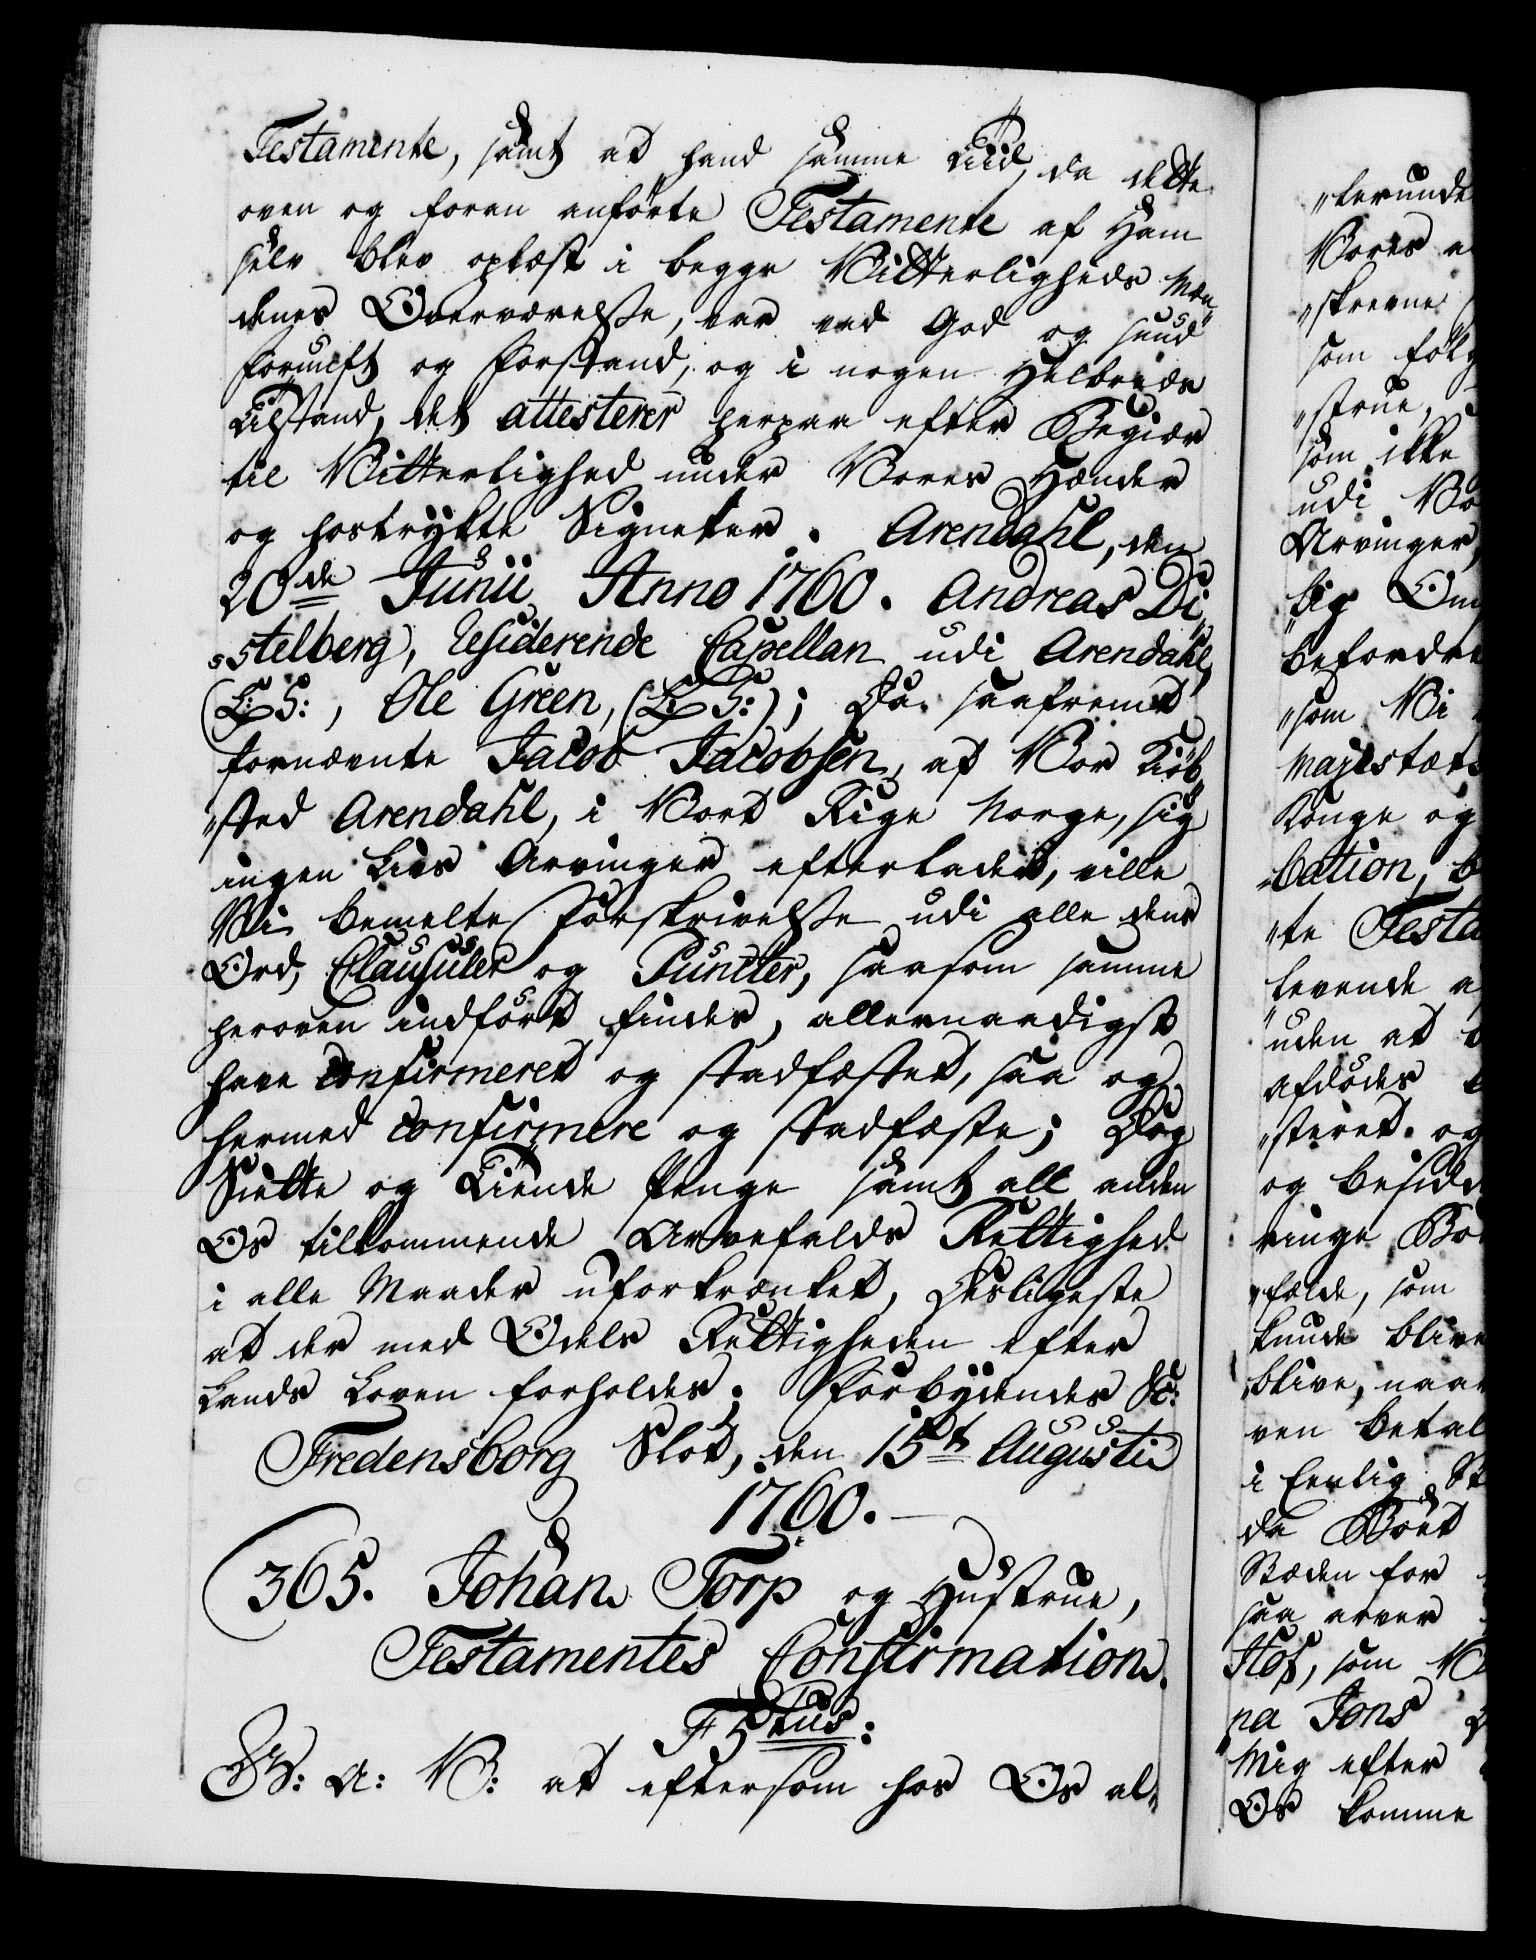 Testamente, samt at hand samme Tiid, da dette
oven og foran anførte Testamente af Ham
selv blev oplæst i begge Vitterligheds Mæn„
denes Overværelse, var ved God og sund
fornuft og Forstand, og i nogen Helbreds
Tilstand, det attesterer herpaa efter Begiær
til Vitterlighed under Vores Hænder
og hostrykte Signeter. Arendahl, den
20de Junii Anno 1760. Andreas Di„
„stelberg, Residerende Capellan udi Arendahl,
(L: S:, Ole Green, (L: S:); Da saafremt
fornævnte Jacob Jacobsen, af Vor Kiøb„
„sted Arendahl, i Vort Rige Norge, sig
ingen Livs Arvinger efterlader, ville
Vi bemelte Forskrivelse udi alle dens
Ord, Clausuler og Puncter, saasom samme
heroven indført findes, allernaadigst
have confirmeret og stadfæstet, saa og
hermed confirmere og stadfæste; Dog
Siette og Tiende Penge samt all anden
Os tilkommende Arvefalds Rettighed
i alle Maader uforkrænket, Desligeste
at der med Odels Rettigheden efter
Lands Loven forholdes; Forbydendes &c:
Fredensborg Slot, den 15t Augustii
1760.
365. Johan Torp og Hustrue,
Testamentes Confirmation.
F 5tus:
G: A: V: at eftersom hos Os al„
„lerunde
Vores
„skrevne
som følg
„strue,
som ikke
udi Vo
Arvinger,
lig Om
befordre
„som Vi
Majestæts
Konge og
„bation, b
„te Testa
levende
uden at
afdødes
„steret og
og besidd
ringe Bo
„fælde, som
kunde blive
blive, naar
ven betal
i Eenlig St
da Boet
Bøden for
saa arver
Hos, som
na Jons
Mig efter
Os komme